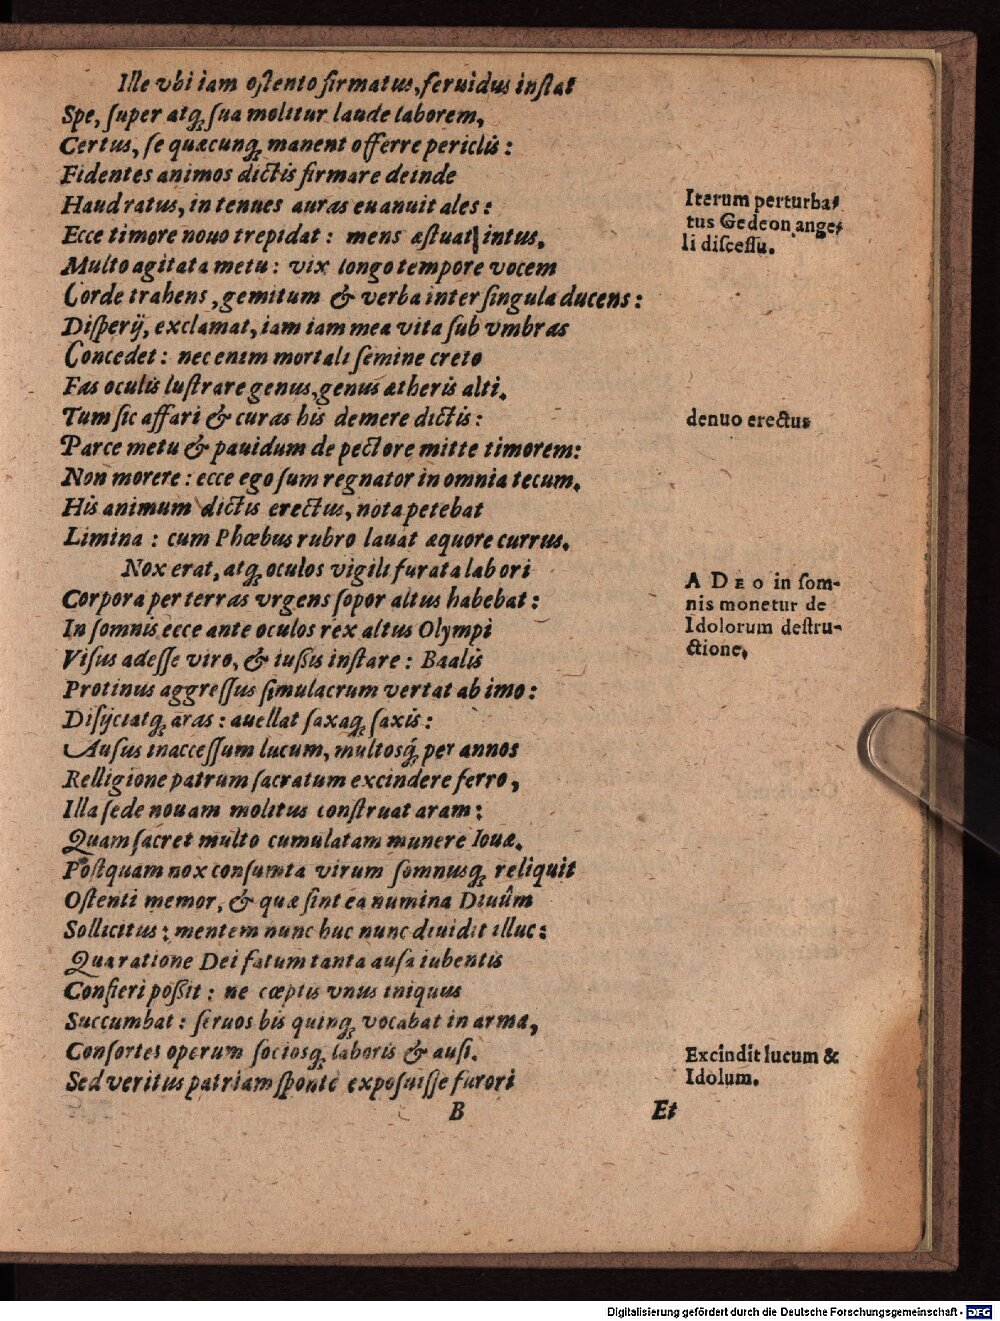 Ille vbi iam oſtento firmatus, feruidus inſtat
Spe, ſuper atq; ſua molitur laude laborem,
Certus, ſe quæcunq; manent offerre periclis:
Fidentes animos dictis firmare deinde
Haud ratus, in tenues auras euanuit ales:
Iterum perturba-
tus Gedeon ange-
li diſceſſu.
Ecce timore nouo trepidat: mens æſtuat intus,
Multo agitata metu: vix longo tempore vocem
Corde trahens, gemitum & verba inter ſingula ducens:
Diſperij, exclamat, iam iam mea vita ſub vmbras
Concedet: nec enim mortali ſemine creto
Fas oculis luſtrare genus, genus ætheris alti.
Tum ſic affari & curas his demere dictis:
denuo erectus
Parce metu & pauidum de pectore mitte timorem:
Non morere: ecce ego ſum regnator in omnia tecum.
His animum dictis erectus, nota petebat
Limina: cum Phœbus rubro lauat æquore currus.
Nox erat, atq; oculos vigili furata labori
A DEO in ſom-
nis monetur de
Idolorum deſtru-
ctione.
Corpora per terras vrgens ſopor altus habebat:
In ſomnis ecce ante oculos rex altus Olympi
Viſus adeſſe viro, & iuſsis inſtare: Baalis
Protinus aggreſſus ſimulacrum vertat ab imo:
Diſijciatq; aras: auellat ſaxaq; ſaxis:
Auſus inacceſſum lucum, multosq; per annos
Relligione patrum ſacratum excindere ferro,
Illa ſede nouam molitus conſtruat aram:
Quam ſacret multo cumulatam munere Iouæ.
Poſtquam nox conſumta virum ſomnusq; reliquit
Oſtenti memor, & quæ ſint ea numina Diuûm
Sollicitus: mentem nunc huc nunc diuidit illuc:
Qua ratione Dei fatum tanta auſa iubentis
Confieri poſsit: ne cœptis vnus iniquus
Succumbat: ſeruos bis quinq; vocabat in arma,
Conſortes operum ſociosq; laboris & auſi.
Excindit lucum &
Idolum.
Sed veritus patriam ſponte expoſuiſſe furori
B
Et
Digitalisierung gefördert durch die Deutsche Forschungsgemeinschaft - DFG